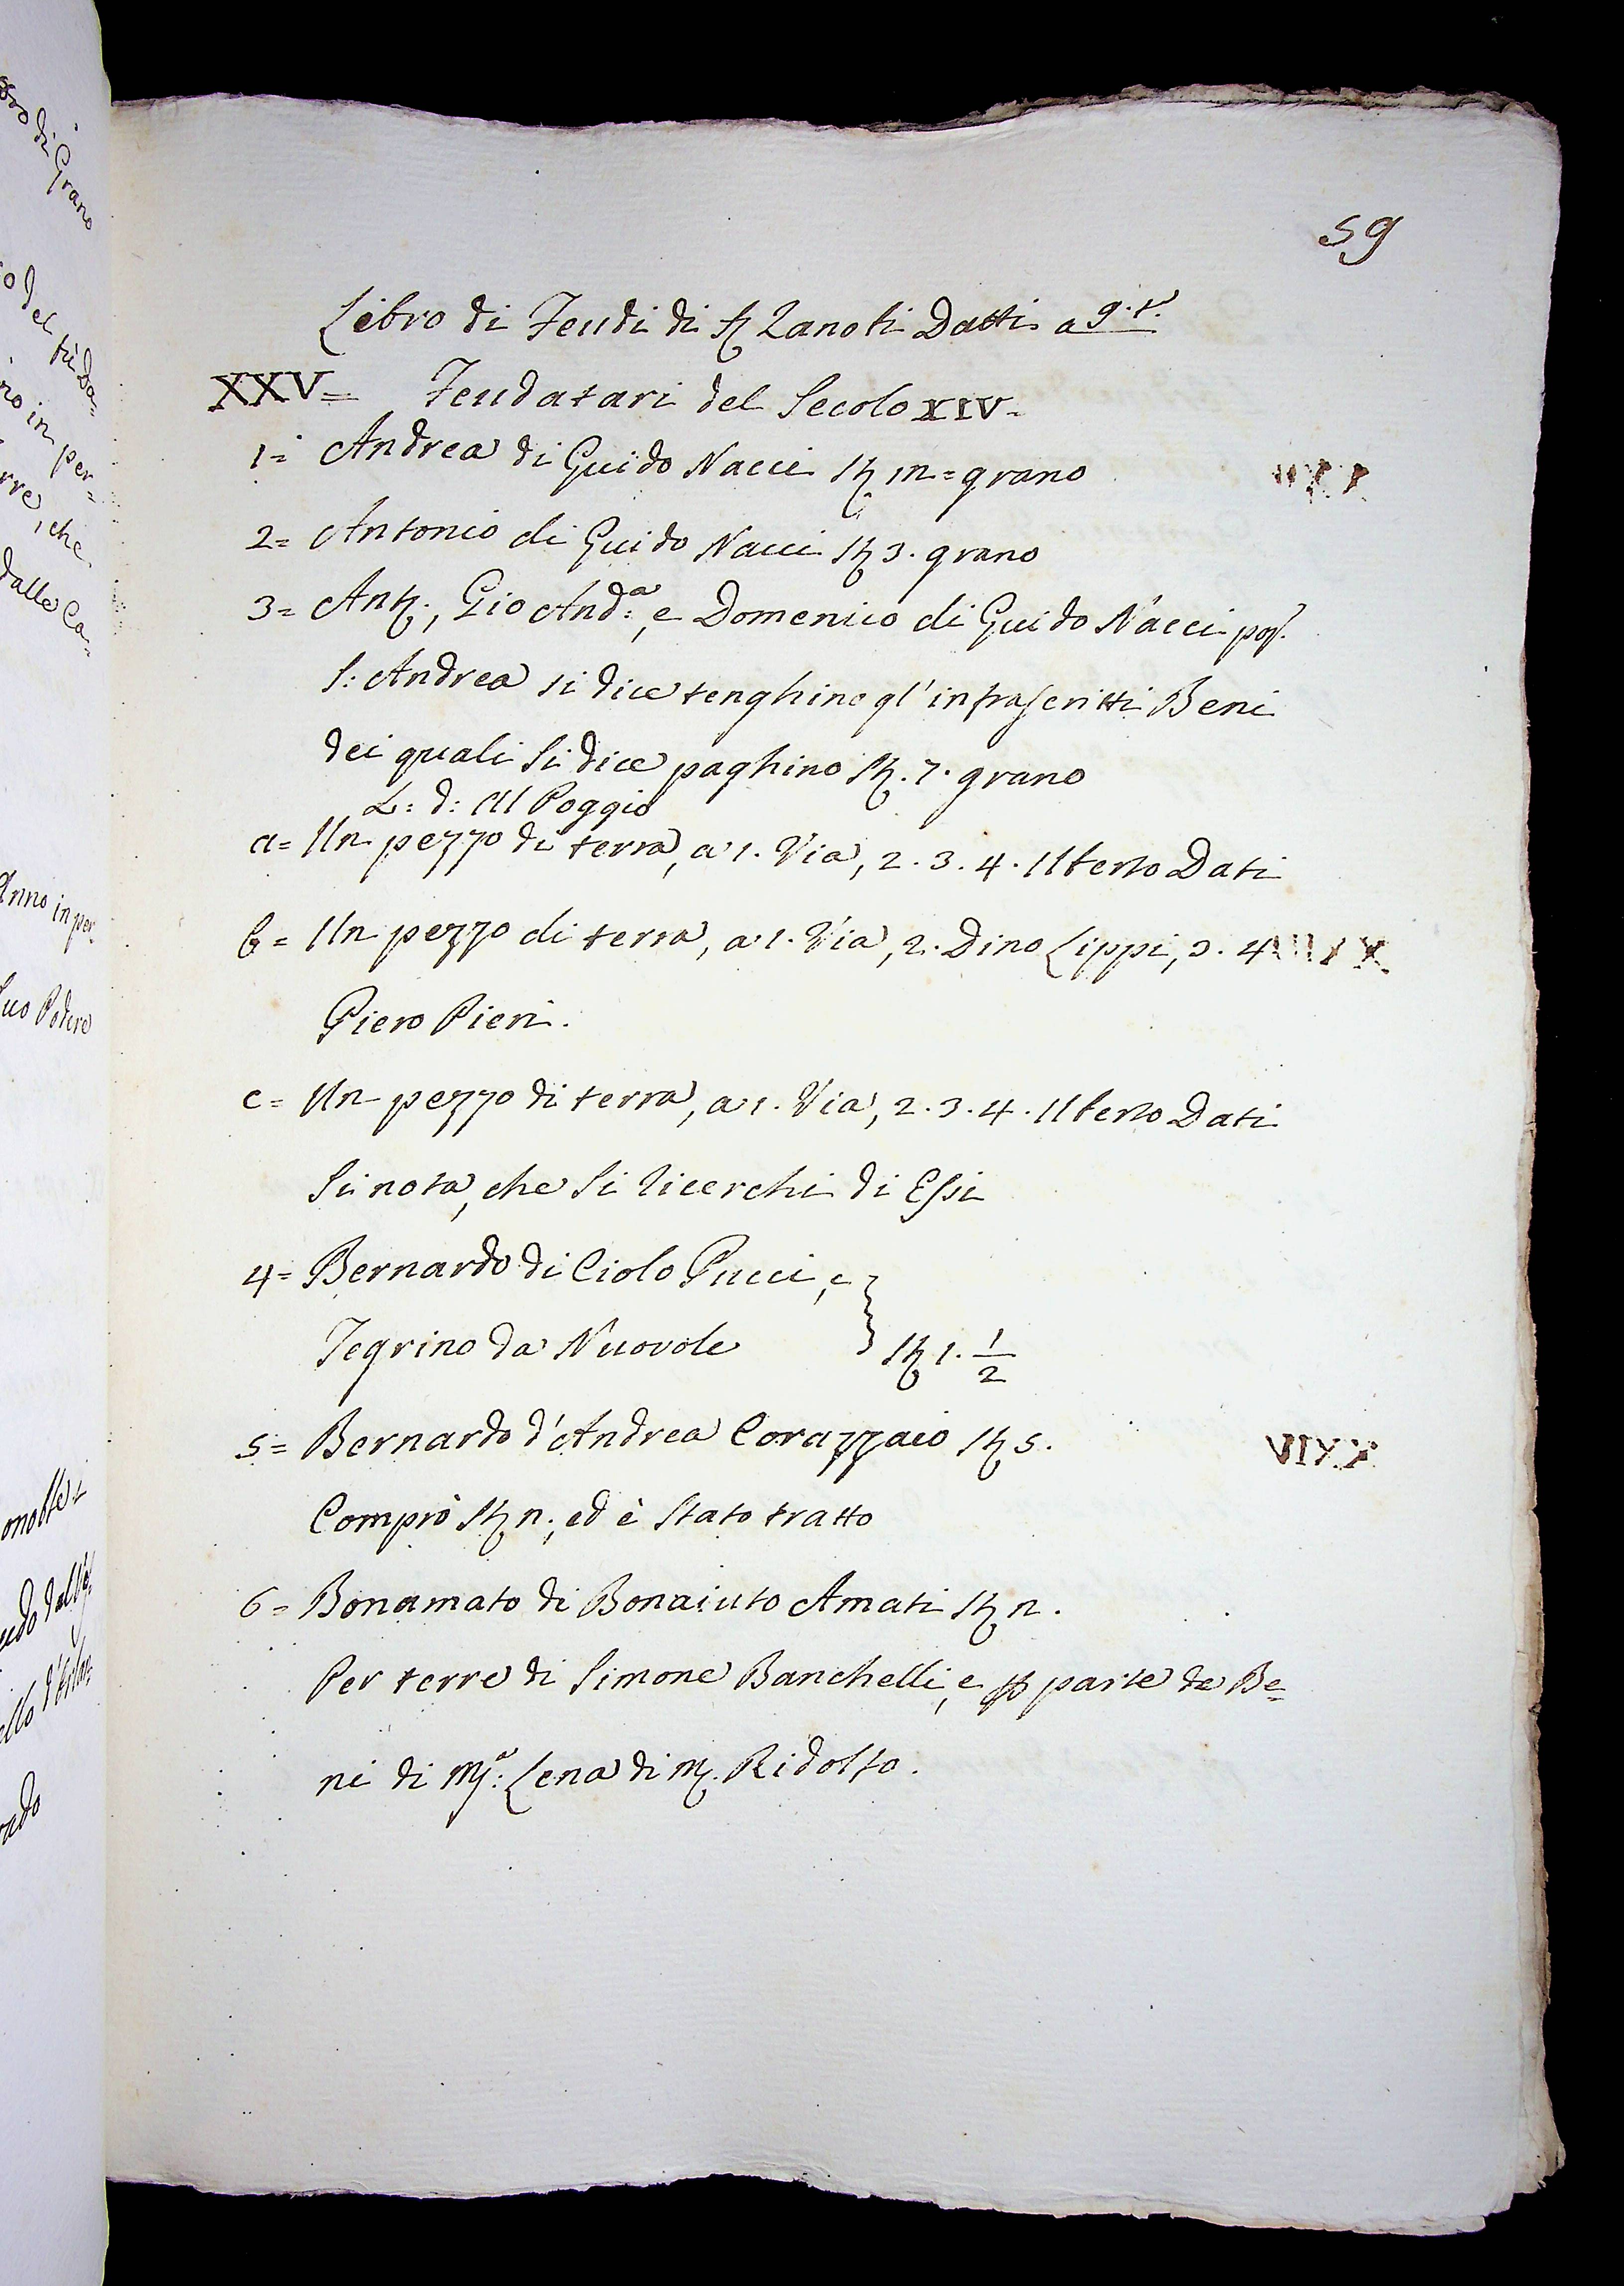 59
Libro di Feudi di S. Zanobi Datti a g.t.
XXV= Feudatari del Secolo XIV=
1= Andrea di Guido Nacci St. m= grano
2= Antonio di Guido Nacci St. 3. grano
3= Ant., Gio And:a, e Domenico di Guido Nacci pop.
S: Andrea si dice tenghino gl'infrascritti Beni
dei quali Si dice paghino St. 7. grano
L: d: Al Poggio
a= Un pezzo di terra, a 1. Via, 2. 3. 4. Uberto Dati
b= Un pezzo di terra, a 1. Via, 2. Dino Lippi, 3. 4
Piero Pieri.
c= Un pezzo di terra, a 1. Via, 2. 3. 4. Uberto Dati
Si nota, che Si ricerchi di Essi
4= Bernardo di Ciolo Pucci, e
Tegrino da Nuovole } St. 1. 1/2
5= Bernardo d'Andrea Corazzaio St. 5.
Comprò St. n., ed è Stato tratto
6= Bonamato di Bonaiuto Amati St. n.
Per terre di Simone Banchelli, e p parte de Be=
ni di M:a Lena di M. Ridolfo.